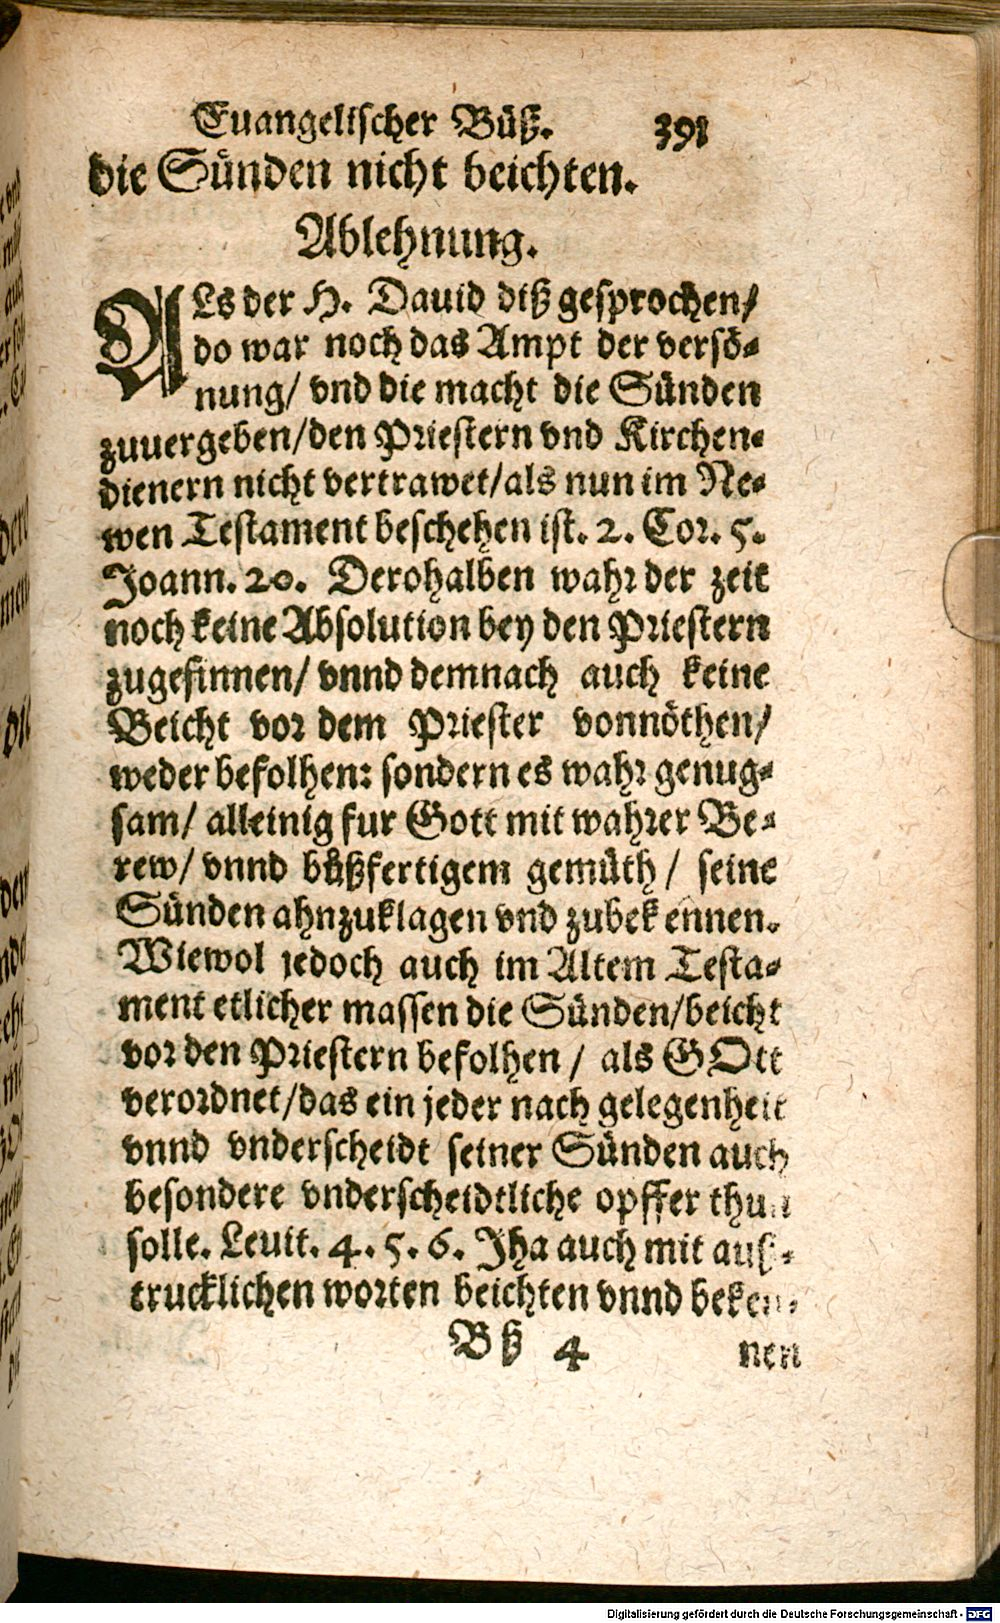 Euangelischer Büß. 391
die Sünden nicht beichten.
Ablehnung.
ALs der H. Dauid diß gesprochen/
do war noch das Ampt der versö-
nung/ vnd die macht die Sünden
zuuergeben/den Priestern vnd Kirchen-
dienern nicht vertrawet/als nun im Ne-
wen Testament beschehen ist. 2. Cor. 5.
Joann. 20. Derohalben wahr der zeit
noch keine Absolution bey den Priestern
zugesinnen/ vnnd demnach auch keine
Beicht vor dem Priester vonnöthen/
weder befolhen: sondern es wahr genug-
sam/ alleinig fur Gott mit wahrer Be-
rew/ vnnd bůßfertigem gemüth/ seine
Sünden ahnzuklagen vnd zubekennen.
Wiewol jedoch auch im Altem Testa-
ment etlicher massen die Sünden/beicht
vor den Priestern befolhen/ als GOtt
verordnet/das ein jeder nach gelegenheit
vnnd vnderscheidt seiner Sünden auch
besondere vnderscheidtliche opffer thun
solle. Leuit. 4. 5. 6. Jha auch mit auß-
trucklichen worten beichten vnnd beken-
Bß 4 nen
Digitalisierung gefördert durch die Deutsche Forschungsgemeinschaft - DFG